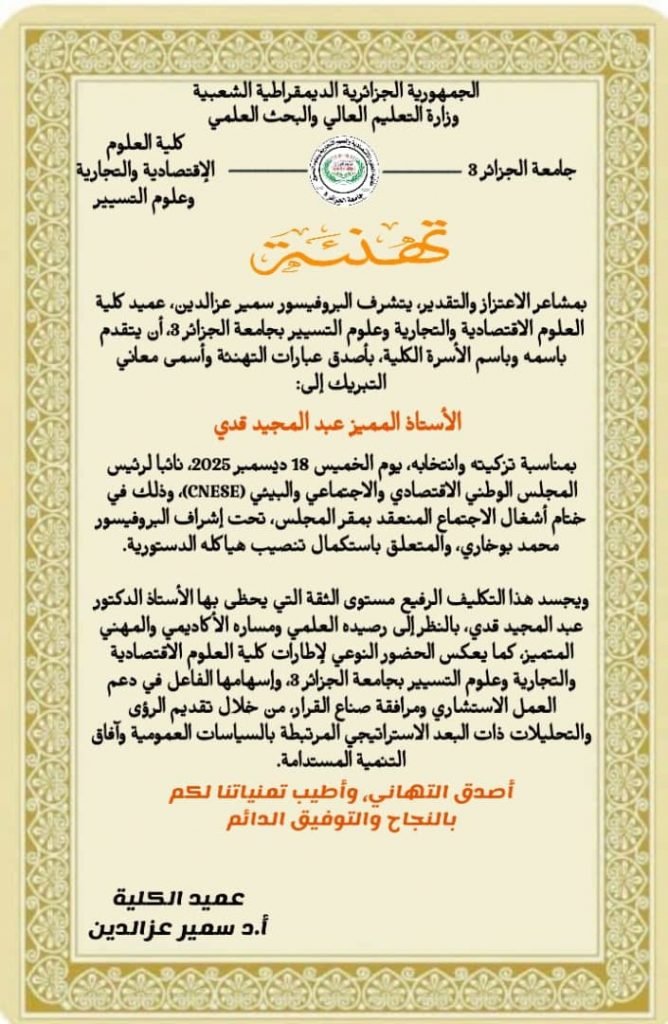 الجمهورية الجزائرية الديمقراطية الشعبية
وزارة التعليم العالي والبحث العلمي
جامعة الجزائر 3
كلية العلوم
الإقتصادية والتجارية
وعلوم التسيير
تهنئة
بمشاعر الاعتزاز والتقدير، يتشرف البروفيسور سمير عزالدين، عميد كلية
العلوم الاقتصادية والتجارية وعلوم التسيير بجامعة الجزائر 3، أن يتقدم
باسمه وباسم الأسرة الكلية، بأصدق عبارات التهنئة وأسمى معاني
التبريك إلى:
الأستاذ المميز عبد المجيد قدي
بمناسبة تزكيته وانتخابه، يوم الخميس 18 ديسمبر 2025، نائبا لرئيس
المجلس الوطني الاقتصادي والاجتماعي والبيئي (CNESE)، وذلك في
ختام أشغال الاجتماع المنعقد بمقر المجلس، تحت إشراف البروفيسور
محمد بوخاري، والمتعلق باستكمال تنصيب هياكله الدستورية.
ويجسد هذا التكليف الرفيع مستوى الثقة التي يحظى بها الأستاذ الدكتور
عبد المجيد قدي، بالنظر إلى رصيده العلمي ومساره الأكاديمي والمهني
المتميز، كما يعكس الحضور النوعي لإطارات كلية العلوم الاقتصادية
والتجارية وعلوم التسيير بجامعة الجزائر 3، وإسهامها الفاعل في دعم
العمل الاستشاري ومرافقة صناع القرار، من خلال تقديم الرؤى
والتحليلات ذات البعد الاستراتيجي المرتبطة بالسياسات العمومية وآفاق
التنمية المستدامة.
أصدق التهاني، وأطيب تمنياتنا لكم
بالنجاح والتوفيق الدائم
عميد الكلية
أ.د سمير عزالدين